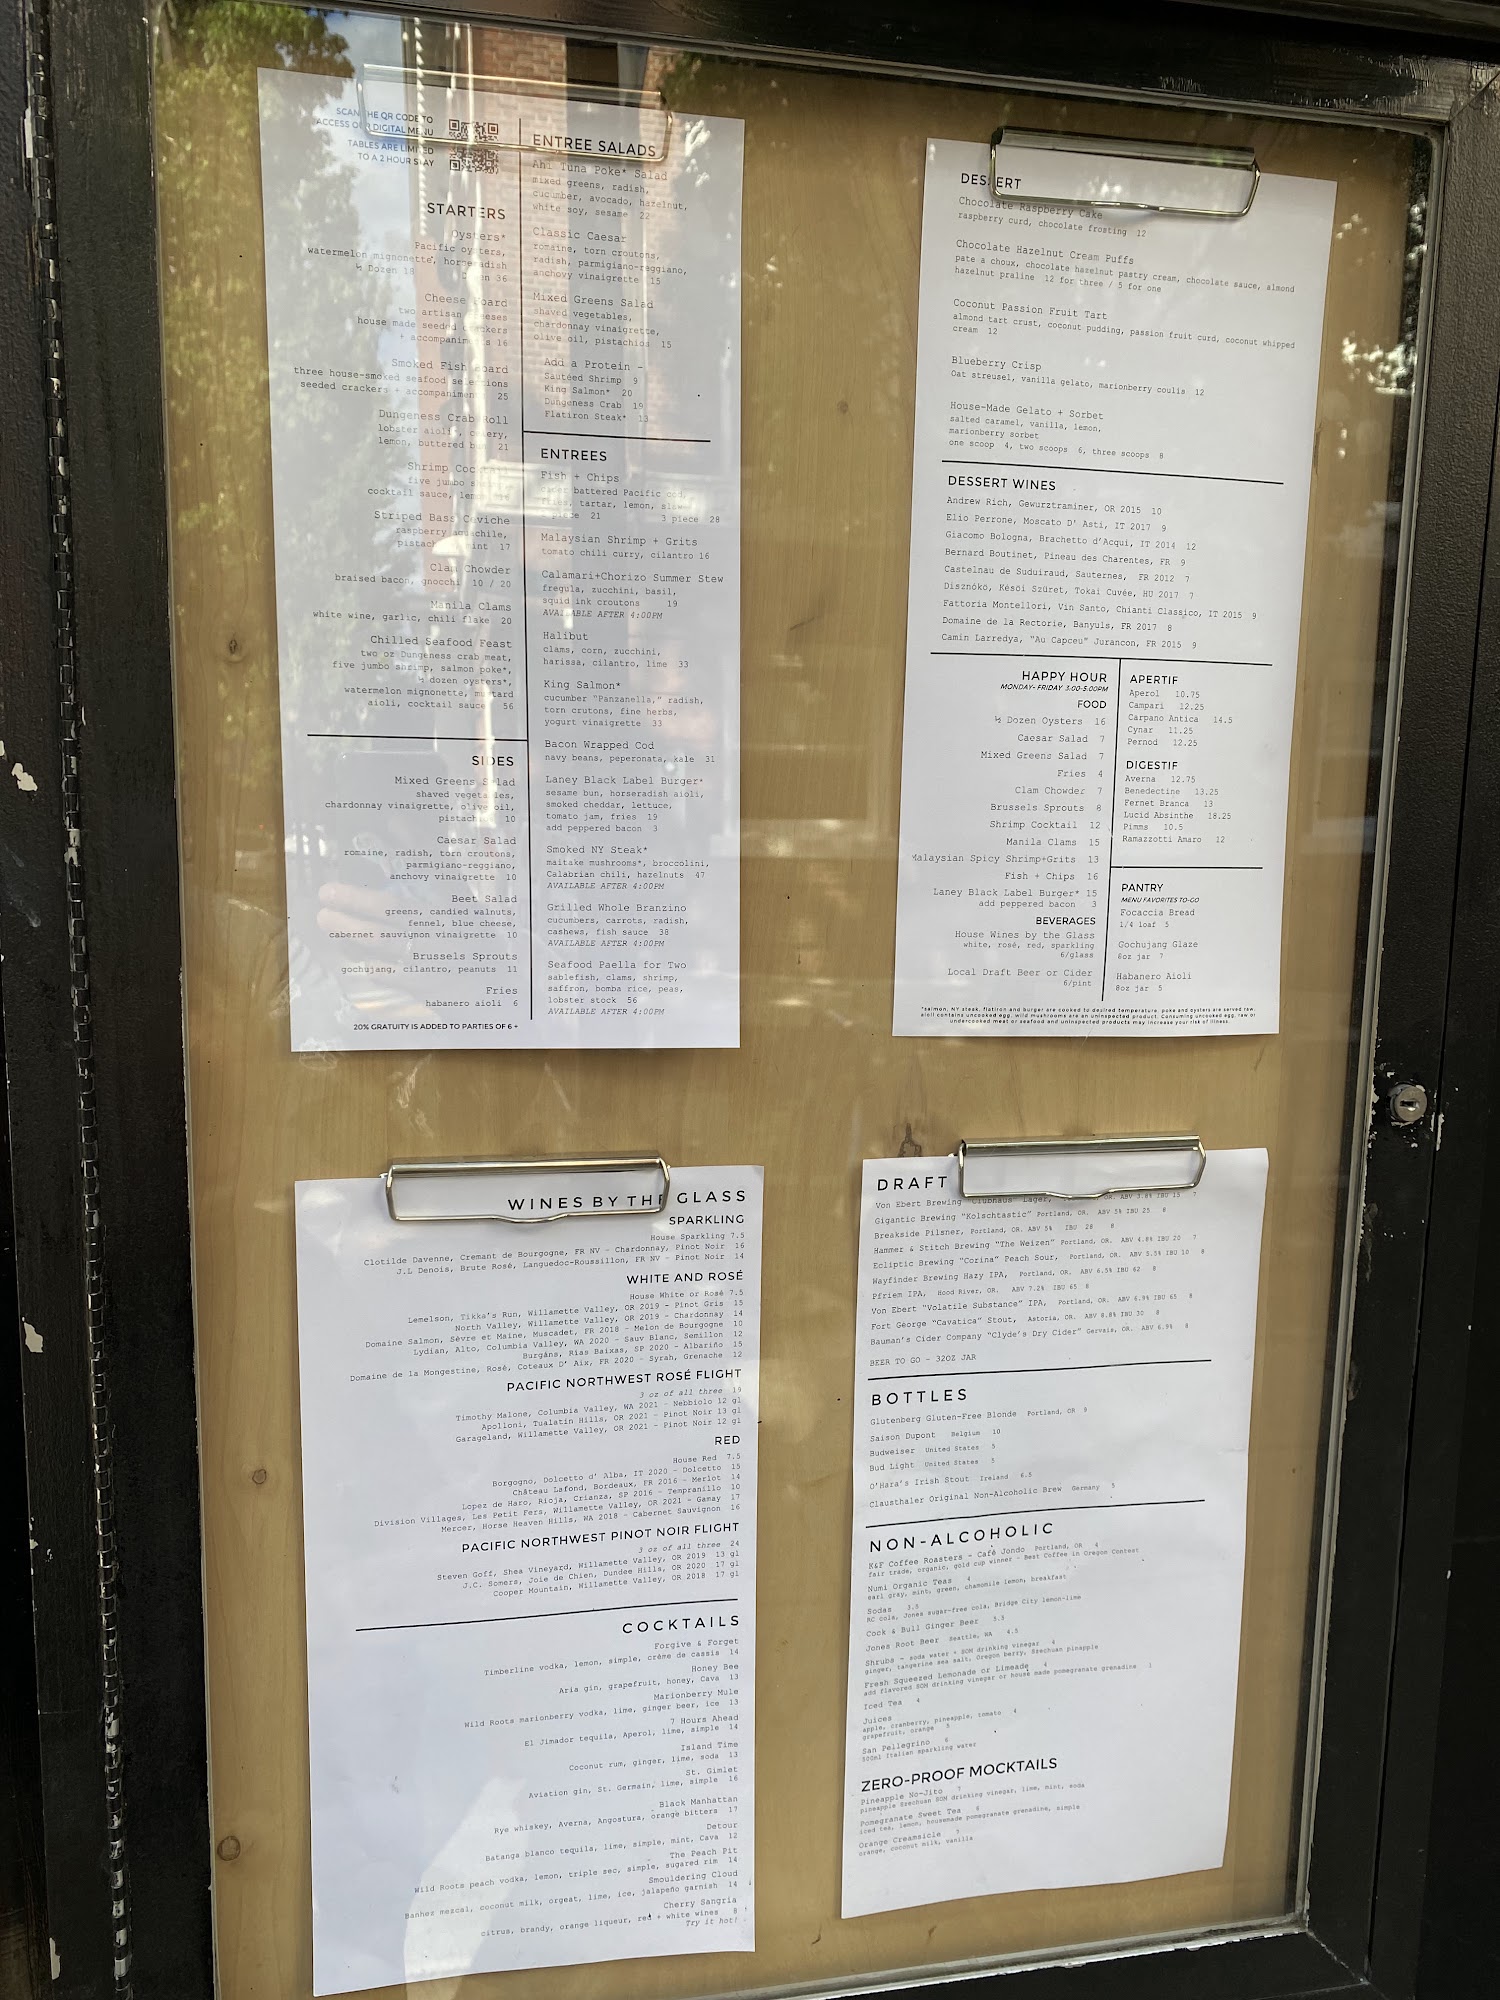 SCAN THE QR CODE TO
ACCESS OUR DIGITAL MENU
TABLES ARE LIMITED
TO A 2 HOUR STAY
STARTERS
Oysters*
Pacific oysters,
watermelon mignonette, horseradish
½ Dozen 18 Dozen 36
Cheese Board
two artisan cheeses
house made seeded crackers
+ accompaniments 16
Smoked Fish Board
three house-smoked seafood selections
seeded crackers + accompaniments 25
Dungeness Crab Roll
lobster aioli, celery,
lemon, buttered bun 21
Shrimp Cocktail
five jumbo shrimp,
cocktail sauce, lemon
Striped Bass Ceviche
raspberry aguachile,
pistachio, mint 17
Clam Chowder
braised bacon, gnocchi 10 / 20
Manila Clams
white wine, garlic, chili flake 20
Chilled Seafood Feast
two oz Dungeness crab meat,
five jumbo shrimp, salmon poke*,
½ dozen oysters*,
watermelon mignonette, mustard
aioli, cocktail sauce 56
SIDES
Mixed Greens Salad
shaved vegetables,
chardonnay vinaigrette, olive oil,
pistachio 10
Caesar Salad
romaine, radish, torn croutons,
parmigiano-reggiano,
anchovy vinaigrette 10
Beet Salad
greens, candied walnuts,
fennel, blue cheese,
cabernet sauvignon vinaigrette 10
Brussels Sprouts
gochujang, cilantro, peanuts 11
Fries
habanero aioli 6
20% GRATUITY IS ADDED TO PARTIES OF 6 +
ENTREE SALADS
Ahi Tuna Poke* Salad
mixed greens, radish,
cucumber, avocado, hazelnut,
white soy, sesame 22
Classic Caesar
romaine, torn croutons,
radish, parmigiano-reggiano,
anchovy vinaigrette 15
Mixed Greens Salad
shaved vegetables,
chardonnay vinaigrette,
olive oil, pistachios 15
Add a Protein -
Sautéed Shrimp 9
King Salmon* 20
Dungeness Crab 19
Flatiron Steak* 13
ENTREES
Fish + Chips
battered Pacific cod,
fries, tartar, lemon, slaw
piece 21 3 piece 28
Malaysian Shrimp + Grits
tomato chili curry, cilantro 16
Calamari+Chorizo Summer Stew
fregula, zucchini, basil,
squid ink croutons 19
AVAILABLE AFTER 4:00PM
Halibut
clams, corn, zucchini,
harissa, cilantro, lime 33
King Salmon*
cucumber "Panzanella," radish,
torn crutons, fine herbs,
yogurt vinaigrette 33
Bacon Wrapped Cod
navy beans, peperonata, kale 31
Laney Black Label Burger*
sesame bun, horseradish aioli,
smoked cheddar, lettuce,
tomato jam, fries 19
add peppered bacon 3
Smoked NY Steak*
maitake mushrooms*, broccolini,
Calabrian chili, hazelnuts 47
AVAILABLE AFTER 4:00PM
Grilled Whole Branzino
cucumbers, carrots, radish,
cashews, fish sauce 38
AVAILABLE AFTER 4:00PM
Seafood Paella for Two
sablefish, clams, shrimp,
saffron, bomba rice, peas,
lobster stock 56
AVAILABLE AFTER 4:00PM
DESSERT
Chocolate Raspberry Cake
raspberry curd, chocolate frosting 12
Chocolate Hazelnut Cream Puffs
pate a choux, chocolate hazelnut pastry cream, chocolate sauce, almond
hazelnut praline 12 for three / 5 for one
Coconut Passion Fruit Tart
almond tart crust, coconut pudding, passion fruit curd, coconut whipped
cream 12
Blueberry Crisp
Oat streusel, vanilla gelato, marionberry coulis 12
House-Made Gelato + Sorbet
salted caramel, vanilla, lemon,
marionberry sorbet
one scoop 4, two scoops 6, three scoops 8
DESSERT WINES
Andrew Rich, Gewurztraminer, OR 2015 10
Elio Perrone, Moscato D' Asti, IT 2017 9
Giacomo Bologna, Brachetto d'Acqui, IT 2014 12
Bernard Boutinet, Pineau des Charentes, FR 9
Castelnau de Suduiraud, Sauternes, FR 2012 7
Disznókó, Késöi Szüret, Tokai Cuvée, HU 2017 7
Fattoria Montellori, Vin Santo, Chianti Classico, IT 2015 9
Domaine de la Rectorie, Banyuls, FR 2017 8
Camin Larredya, "Au Capceu" Jurancon, FR 2015 9
HAPPY HOUR
MONDAY- FRIDAY 3:00-5:00PM
FOOD
½ Dozen Oysters 16
Caesar Salad 7
Mixed Greens Salad 7
Fries 4
Clam Chowder 7
Brussels Sprouts 8
Shrimp Cocktail 12
Manila Clams 15
Malaysian Spicy Shrimp+Grits 13
Fish + Chips 16
Laney Black Label Burger* 15
add peppered bacon 3
BEVERAGES
House Wines by the Glass
white, rosé, red, sparkling
6/glass
Local Draft Beer or Cider
6/pint
APERTIF
Aperol 10.75
Campari 12.25
Carpano Antica 14.5
Cynar 11.25
Pernod 12.25
DIGESTIF
Averna 12.75
Benedectine 13.25
Fernet Branca 13
Lucid Absinthe 18.25
Pimms 10.5
Ramazzotti Amaro 12
PANTRY
MENU FAVORITES TO-GO
Focaccia Bread
1/4 loaf 5
Gochujang Glaze
8oz jar 7
Habanero Aioli
8oz jar 5
*salmon, NY steak, flatiron and burger are cooked to desired temperature. poke and oysters are served raw.
aioli contains uncooked egg. wild mushrooms are an uninspected product. Consuming uncooked egg, raw or
undercooked meat or seafood and uninspected products may increase your risk of illness.
WINES BY THE GLASS
SPARKLING
House Sparkling 7.5
Clotilde Davenne, Cremant de Bourgogne, FR NV - Chardonnay, Pinot Noir 16
J.L Denois, Brute Rosé, Languedoc-Roussillon, FR NV - Pinot Noir 14
WHITE AND ROSÉ
House White or Rosé 7.5
Lemelson, Tikka's Run, Willamette Valley, OR 2019 - Pinot Gris 15
North Valley, Willamette Valley, OR 2019 - Chardonnay 14
Domaine Salmon, Sèvre et Maine, Muscadet, FR 2018 - Melon de Bourgogne 10
Lydian, Alto, Columbia Valley, WA 2020 - Sauv Blanc, Semillon 12
Burgáns, Rías Baixas, SP 2020 - Albariño 15
Domaine de la Mongestine, Rosé, Coteaux D' Aix, FR 2020 - Syrah, Grenache 12
PACIFIC NORTHWEST ROSÉ FLIGHT
3 oz of all three 19
Timothy Malone, Columbia Valley, WA 2021 - Nebbiolo 12 gl
Apolloni, Tualatin Hills, OR 2021 - Pinot Noir 13 gl
Garageland, Willamette Valley, OR 2021 - Pinot Noir 12 gl
RED
House Red 7.5
Borgogno, Dolcetto d' Alba, IT 2020 - Dolcetto 15
Château Lafond, Bordeaux, FR 2016 - Merlot 14
Lopez de Haro, Rioja, Crianza, SP 2016 - Tempranillo 10
Division Villages, Les Petit Fers, Willamette Valley, OR 2021 - Gamay 17
Mercer, Horse Heaven Hills, WA 2018 - Cabernet Sauvignon 16
PACIFIC NORTHWEST PINOT NOIR FLIGHT
3 oz of all three 24
Steven Goff, Shea Vineyard, Willamette Valley, OR 2019 13 gl
J.C. Somers, Joie de Chien, Dundee Hills, OR 2020 17 gl
Cooper Mountain, Willamette Valley, OR 2018 17 gl
COCKTAILS
Forgive & Forget
Timberline vodka, lemon, simple, crème de cassis 14
Honey Bee
Aria gin, grapefruit, honey, Cava 13
Marionberry Mule
Wild Roots marionberry vodka, lime, ginger beer, ice 13
7 Hours Ahead
El Jimador tequila, Aperol, lime, simple 14
Island Time
Coconut rum, ginger, lime, soda 13
St. Gimlet
Aviation gin, St. Germain, lime, simple 16
Black Manhattan
Rye whiskey, Averna, Angostura, orange bitters 17
Detour
Batanga blanco tequila, lime, simple, mint, Cava 12
The Peach Pit
Wild Roots peach vodka, lemon, triple sec, simple, sugared rim 14
Smouldering Cloud
Banhez mezcal, coconut milk, orgeat, lime, ice, jalapeño garnish 14
Cherry Sangria
citrus, brandy, orange liqueur, red + white wines 8
Try it hot!
DRAFT
Von Ebert Brewing "Clubhaus" Lager, OR. ABV 3.8% IBU 15 7
Gigantic Brewing "Kolschtastic" Portland, OR. ABV 5% IBU 25 8
Breakside Pilsner, Portland, OR. ABV 5% IBU 28 8
Hammer & Stitch Brewing "The Weizen" Portland, OR. ABV 4.8% IBU 20 7
Ecliptic Brewing "Corina" Peach Sour, Portland, OR. ABV 5.5% IBU 10 8
Wayfinder Brewing Hazy IPA, Portland, OR. ABV 6.5% IBU 62 8
Pfriem IPA, Hood River, OR. ABV 7.2% IBU 65 8
Von Ebert "Volatile Substance" IPA, Portland, OR. ABV 6.9% IBU 65 8
Fort George "Cavatica" Stout, Astoria, OR. ABV 8.8% IBU 30 8
Bauman's Cider Company "Clyde's Dry Cider" Gervais, OR. ABV 6.9% 8
BEER TO GO - 32OZ JAR
BOTTLES
Glutenberg Gluten-Free Blonde Portland, OR 9
Saison Dupont Belgium 10
Budweiser United States 5
Bud Light United States 5
O'Hara's Irish Stout Ireland 6.5
Clausthaler Original Non-Alcoholic Brew Germany 5
NON-ALCOHOLIC
K&F Coffee Roasters - Café Jondo Portland, OR 4
fair trade, organic, gold cup winner - Best Coffee in Oregon Contest
Numi Organic Teas 4
earl gray, mint, green, chamomile lemon, breakfast
Sodas 3.5
RC cola, Jones sugar-free cola, Bridge City lemon-lime
Cock & Bull Ginger Beer 5.5
Jones Root Beer Seattle, WA 4.5
Shrubs - soda water + SOM drinking vinegar 4
ginger, tangerine sea salt, Oregon berry, Szechuan pineapple
Fresh Squeezed Lemonade or Limeade 4
add flavored SOM drinking vinegar or house made pomegranate grenadine 1
Iced Tea 4
Juices
apple, cranberry, pineapple, tomato 4
grapefruit, orange 5
San Pellegrino 6
500ml Italian sparkling water
ZERO-PROOF MOCKTAILS
Pineapple No-Jito 7
pineapple Szechuan SOM drinking vinegar, lime, mint, soda
Pomegranate Sweet Tea 6
iced tea, lemon, housemade pomegranate grenadine, simple
Orange Creamsicle 7
orange, coconut milk, vanilla